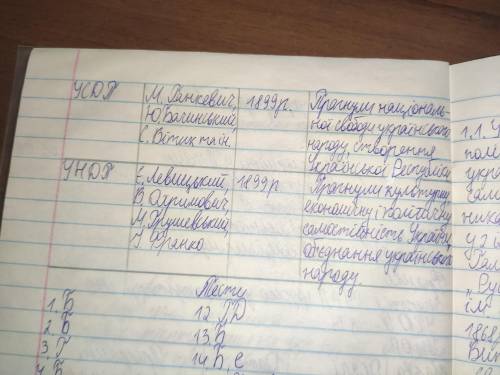 УСДП
М. Ганкевич,
Ю. Бачинський,
С. Вітик та ін.
1899 р.
Прагнули національ-
ної свободи українського
народу, створення
Української Республіки
УНДП
Є. Левицький,
В. Охримович
М. Грушевський,
І. Франко
1899 р
Прагнули культурну,
економічну і політичну
самостійність України,
об'єднання українського
народу
Тести
1. Б
2. Б
3. Г
4. Б
12. Г, Д
13. Б
14. Б, Є
1868